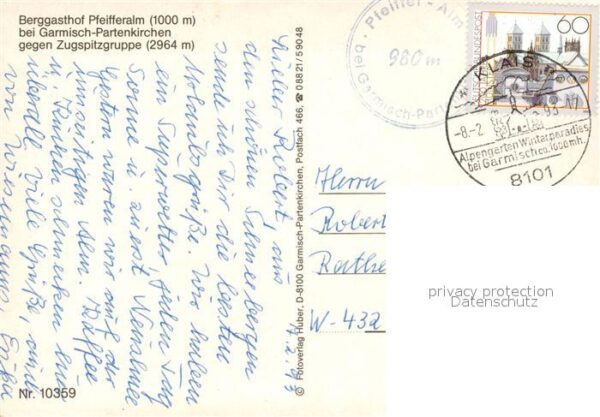 Berggasthof Pfeifferalm (1000 m)
bei Garmisch-Partenkirchen
gegen Zugspitzgruppe (2964 m)
Lieber Robert, aus
den Schneebergen
sende ich Dir die besten
Urlaubsgrüße. Wir haben
ein Superwetter, jeden Tag
Sonne u. zuerst Neuschnee
Gestern waren wir auf der
umseitigen Alm. Kaffee
u. Kuchen schmecken hier
überall. Viele Grüße, auch
von
Nr. 10359
© Fotoverlag Huber, D-8100 Garmisch-Partenkirchen, Postfach 466, ☎ 0 88 21/5 90 48
7.2.93
Pfeiffer-Alm
960 m
bei Garmisch-Part
DEUTSCHE BUNDESPOST
60
KLAIS
-8.-2.93-17
Alpengarten Winterparadies
bei Garmisch ca. 1000 mh.
8101
Herrn
Robert
Rathe
W-432
privacy protection
Datenschutz